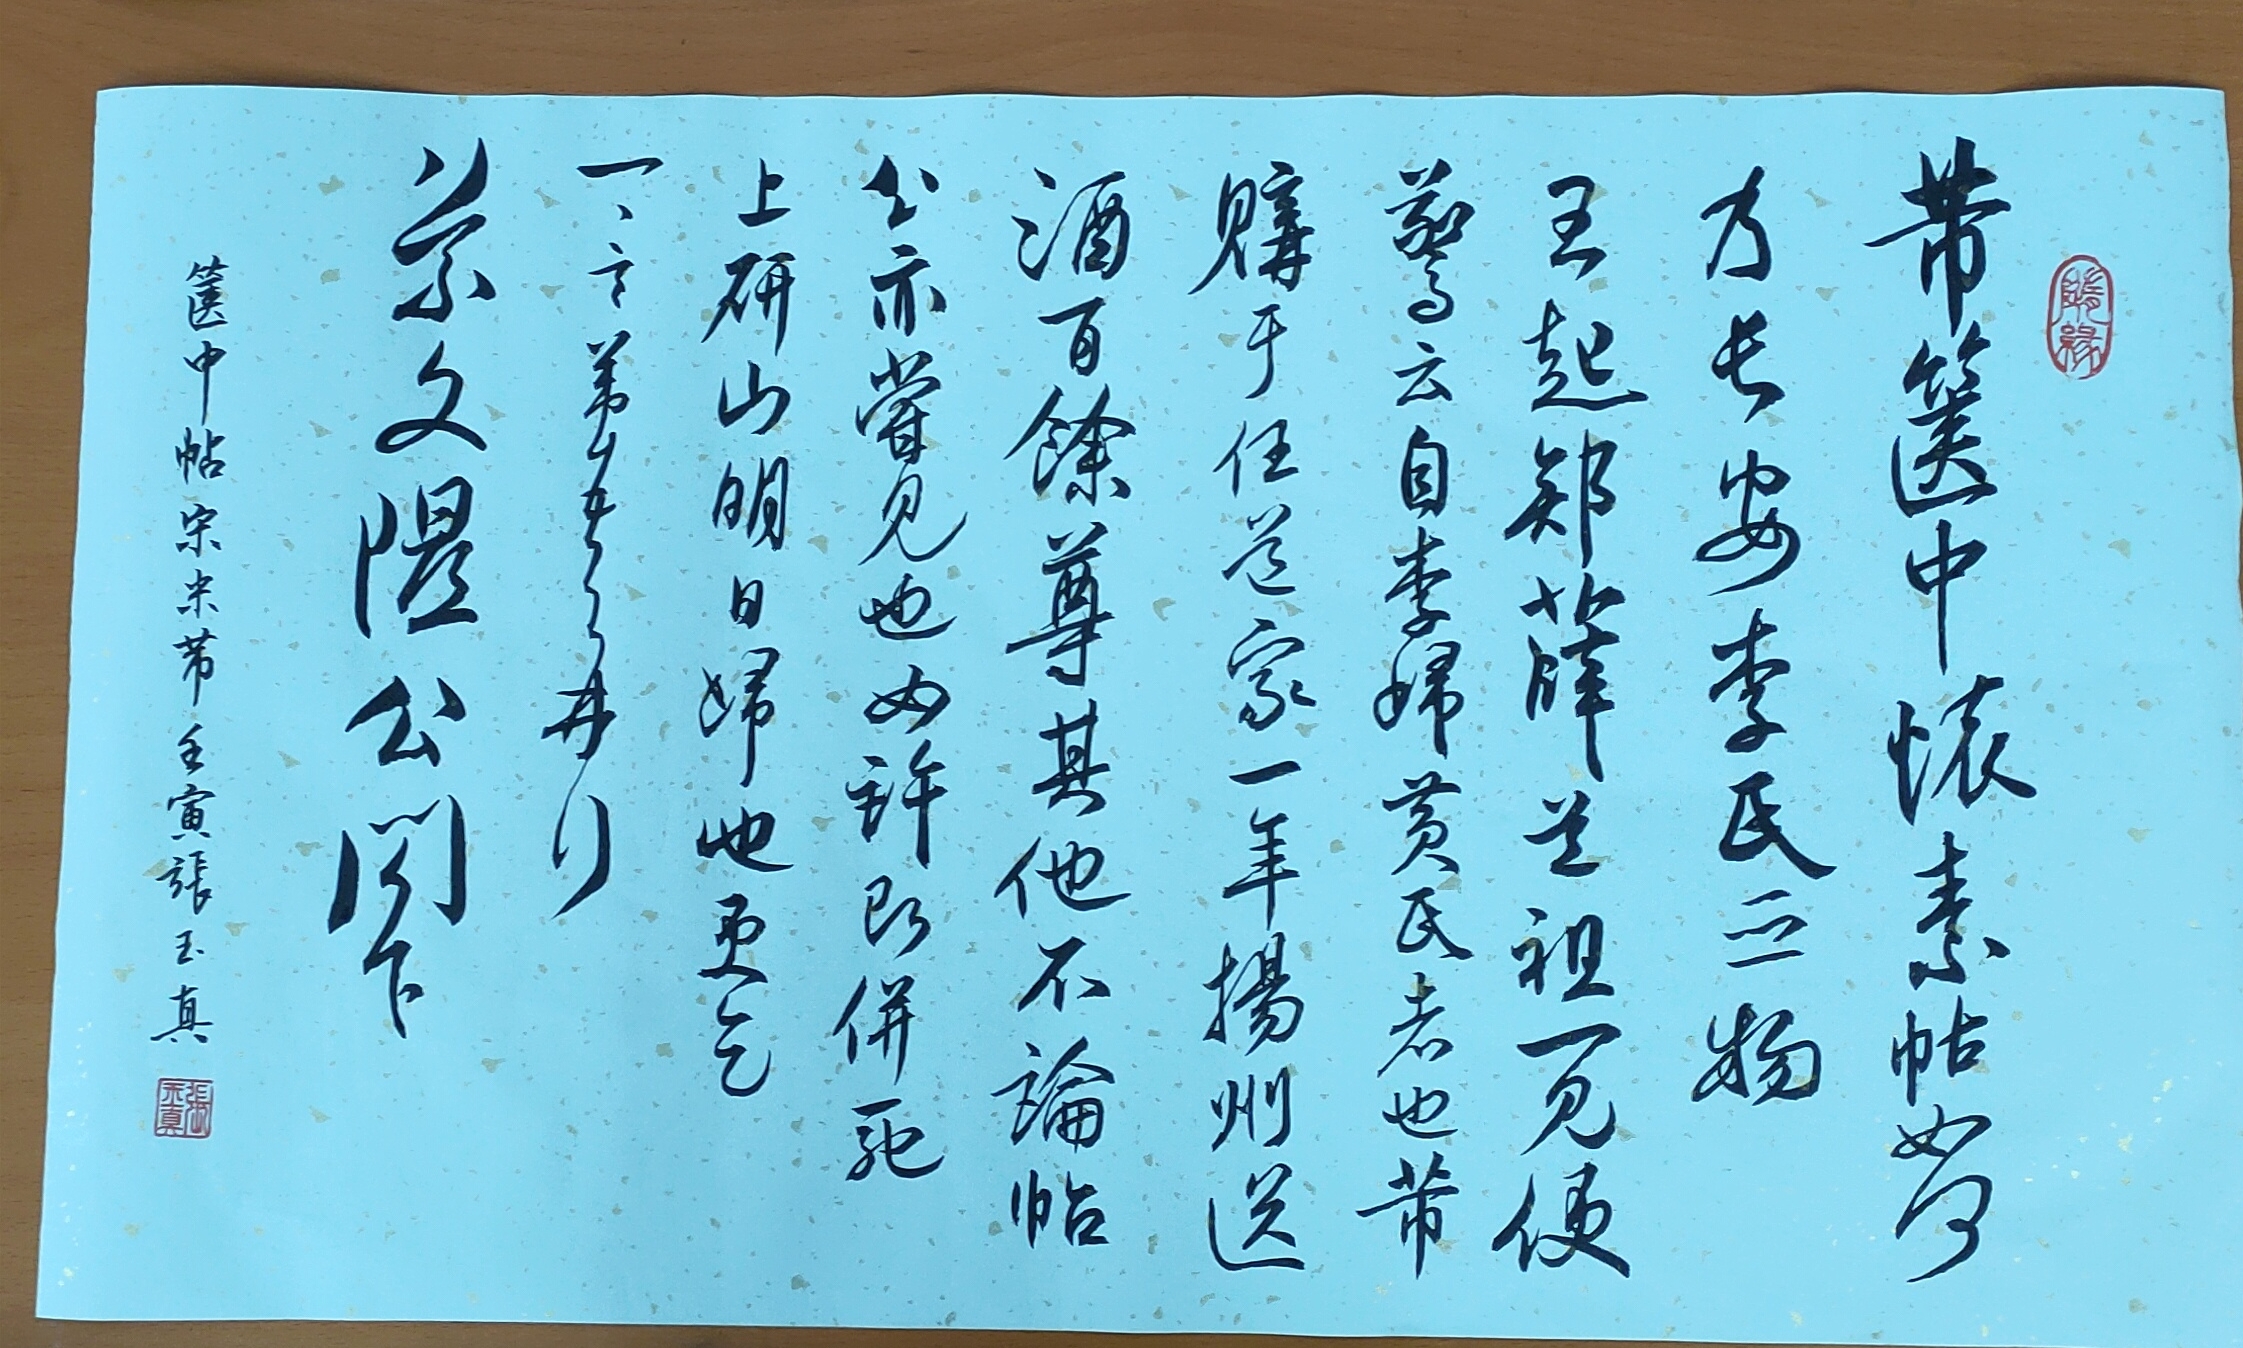 隨緣
芾篋中懷素帖如何
乃長安李氏之物
王起部薛道祖一見便
驚云自李歸黃氏者也芾
購于任道家一年揚州送
酒百餘尊其他不論帖
公亦嘗見也如許即併馳
上研山明日歸也更乞
一言芾頓首再拜
景文隰公閣下
篋中帖宋米芾壬寅張玉真
張玉真